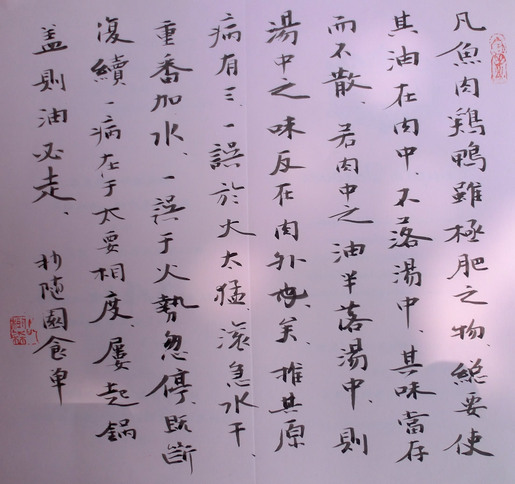 凡魚肉鷄鴨雖極肥之物、總要使
其油在肉中、不落湯中、其味當存
而不散、若肉中之油半落湯中、則
湯中之味反在肉外也矣、推其原
病有三、一誤於火太猛、滚急水干、
重番加水、一誤于火勢忽停、既断
復續、一病在于太要相度、屢起鍋
盖則油必走、
抄随園食单